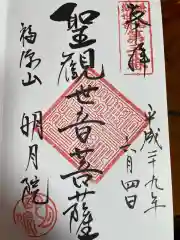 奉拝
平成二十九年
六月四日
聖観世音菩薩
福源山
明月院